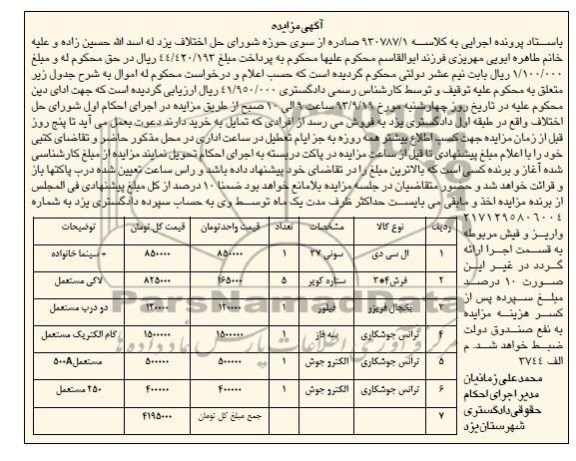 آگهی مزایده
باستناد پرونده اجرایی به کلاسه ۹۳۰۷۸۷/۱ صادره از سوی حوزه شورای حل اختلاف یزد له اسد الله حسین زاده و علیه
خانم طاهره ابویی مهریزی فرزند ابوالقاسم محکوم علیها محکوم به پرداخت مبلغ ۴۴/۴۲۰/۱۹۳ ریال در حق محکوم له و مبلغ
۱/۱۰۰/۰۰۰ ریال بابت نیم عشر دولتی محکوم گردیده است که حسب اعلام و درخواست محکوم له اموال به شرح جدول زیر
متعلق به محکوم علیه توقیف و توسط کارشناس رسمی دادگستری ۴۱/۹۵۰/۰۰۰ ریال ارزیابی گردیده است که جهت ادای دین
محکوم علیه در تاریخ روز چهارشنبه مورخ ۹۳/۹/۱۹ ساعت ۹ الی ۱۰ صبح از طریق مزایده در اجرای احکام اول شورای حل
اختلاف واقع در طبقه اول دادگستری یزد به فروش می رسد از افرادی که تمایل به خرید دارند دعوت بعمل می آید تا پنج روز
قبل از زمان مزایده جهت کسب اطلاع بیشتر همه روزه به جز ایام تعطیل در ساعت اداری در محل مذکور حاضر و تقاضای کتبی
خود را با اعلام مبلغ پیشنهادی تا قبل از ساعت مزایده در پاکت دربسته به اجرای احکام تحویل نمایند مزایده از مبلغ کارشناسی
شده آغاز و برنده کسی است که بالاترین مبلغ را در تقاضای خود پیشنهاد داده باشد و راس ساعت تعیین شده درب پاکتها باز
و قرائت خواهد شد و حضور متقاضیان در جلسه مزایده بلامانع خواهد بود ضمنا ۱۰ درصد از کل مبلغ پیشنهادی فی المجلس
از برنده مزایده اخذ و مابقی می بایست حداکثر ظرف مدت یک ماه توسط وی به حساب سپرده دادگستری یزد به شماره
۲۱۷۱۲۹۵۸۰۶۰۰۴
واریز و فیش مربوطه
به قسمت اجرا ارائه
گردد در غیر این
صورت ۱۰ درصد
مبلغ سپرده پس از
کسر هزینه مزایده
به نفع صندوق دولت
ضبط خواهد شد. م
الف ۳۷۴۴
محمدعلی زمانیان
مدیر اجرای احکام
حقوقی دادگستری
شهرستان یزد
ردیف نوع کالا مشخصات تعداد قیمت واحد تومان قیمت کل تومان توضیحات
۱ ال سی دی سونی ۳۷ ۱ ۸۵۰۰۰۰ ۸۵۰۰۰۰ + سینما خانواده
۲ فرش ۴*۳ ستاره کویر ۵ ۱۶۵۰۰۰ ۸۲۵۰۰۰ لاکی مستعمل
۳ یخچال فریزر فیلور ۱۲۰۰۰۰ ۱۲۰۰۰۰ دو درب مستعمل
۴ ترانس جوشکاری سه فاز ۱ ۱۵۰۰۰۰۰ ۱۵۰۰۰۰۰ گام الکتریک مستعمل
۵ ترانس جوشکاری الکترو جوش ۱ ۵۰۰۰۰۰ ۵۰۰۰۰۰ مستعمل ۵۰۰A
۶ ترانس جوشکاری الکترو جوش ۱ ۴۰۰۰۰۰ ۴۰۰۰۰۰ ۲۵۰ مستعمل
۷ جمع مبلغ کل تومان ۴۱۹۵۰۰۰
ParsNamadData
مرکز فرآوری اطلاعات پارس نماد داده ها